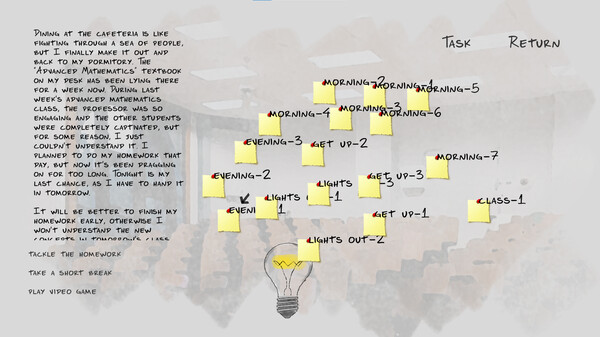 Dining at the cafeteria is like
fighting through a sea of people,
but I finally make it out and
back to my dormitory. The
'Advanced Mathematics' textbook
on my desk has been lying there
for a week now. During last
week's advanced mathematics
class, the professor was so
engaging and the other students
were completely captivated, but
for some reason, I just
couldn't understand it. I
planned to do my homework that
day, but now it's been dragging
on for too long. Tonight is my
last chance, as I have to hand it
in tomorrow.
It will be better to finish my
homework early, otherwise I
won't understand the new
concepts in tomorrow's class
Tackle the homework
Take a short break
Play video game
Task Return
Morning-2
Morning-1
Morning-5
Morning-4
Morning-3
Morning-6
Evening-3
Get up-2
Morning-7
Evening-2
Lights
-3
Get up-3
Lights
-1
Class-1
Even
1
Get up-1
Lights out-2